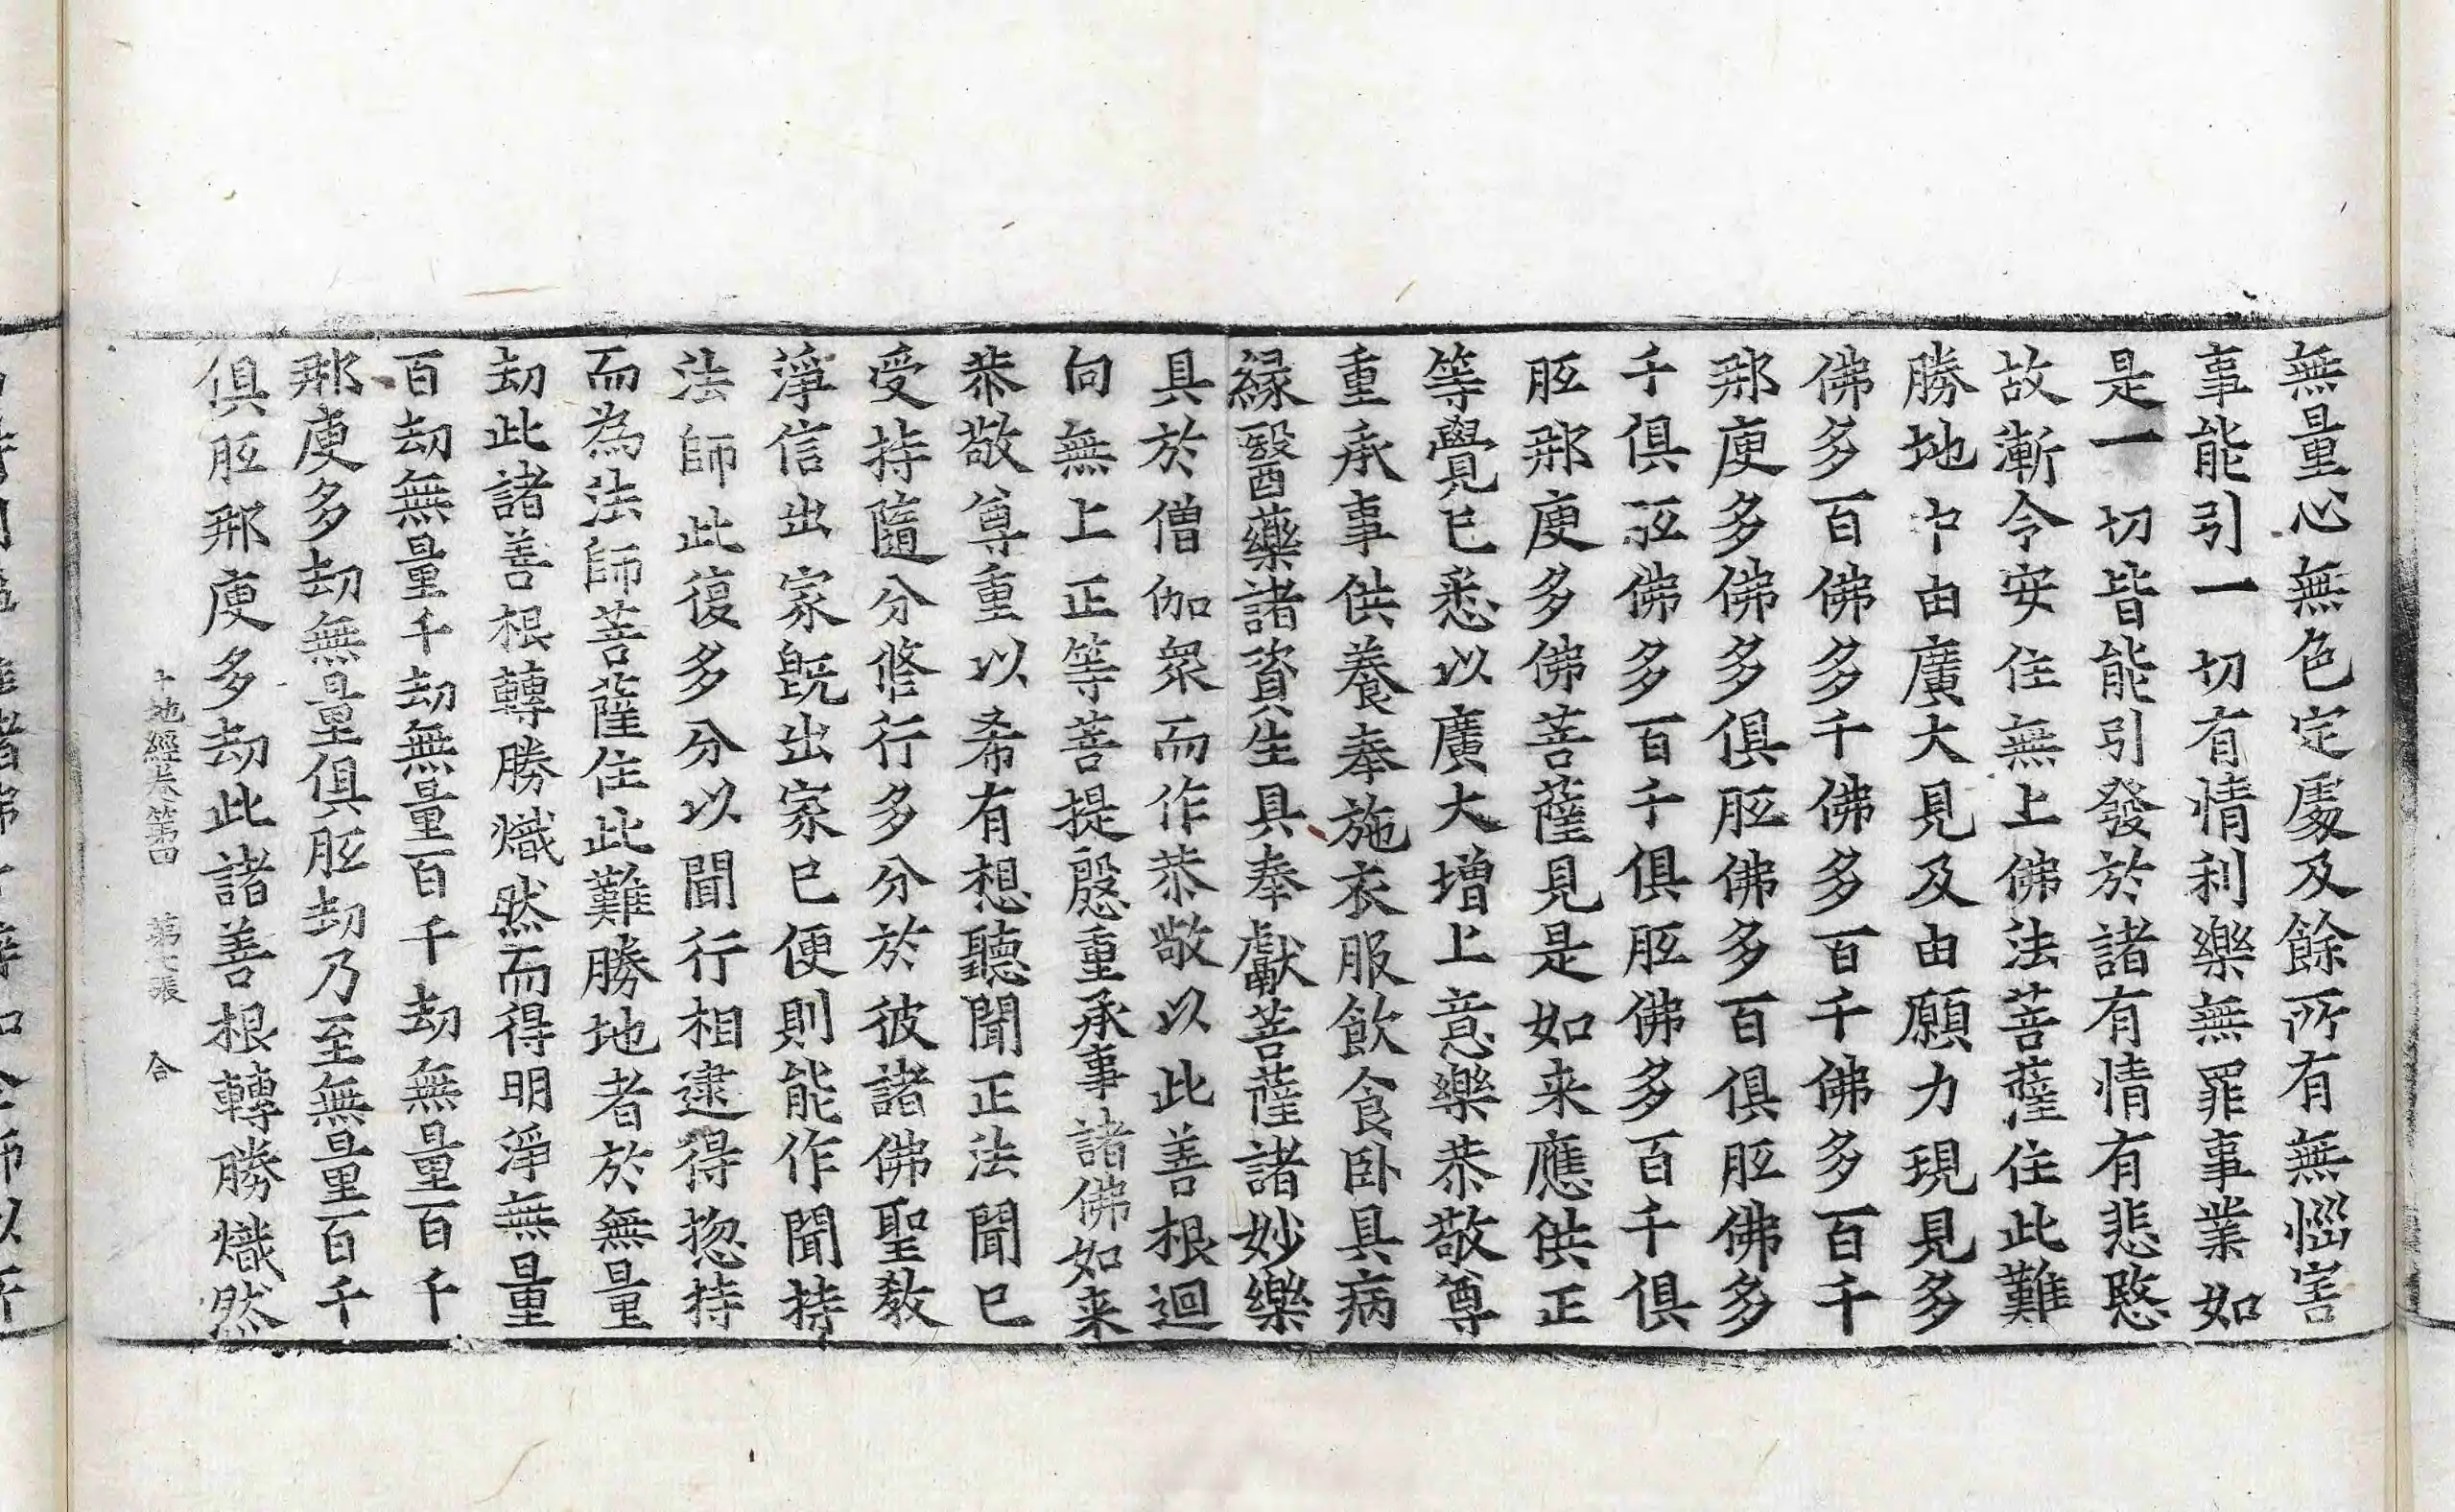 無量心無色定處及餘所有無惱害
事能引一切有情利樂無罪事業如
是一切皆能引發於諸有情有悲愍
故漸令安住無上佛法菩薩住此難
勝地中由廣大見及由願力現見多
佛多百佛多千佛多百千佛多百千
那庾多佛多俱胝佛多百俱胝佛多
千俱胝佛多百千俱胝佛多百千俱
胝那庾多佛菩薩見是如来應供正
等覺已悉以廣大增上意樂恭敬尊
重承事供養奉施衣服飲食卧具病
緣醫藥諸資生具奉獻菩薩諸妙樂
具於僧伽衆而作恭敬以此善根迴
向無上正等菩提慇重承事諸佛如来
恭敬尊重以希有想聽聞正法聞已
受持隨分修行多分於彼諸佛聖教
淨信出家既出家已便則能作聞持
法師此復多分以聞行相逮得揔持
而為法師菩薩住此難勝地者於無量
劫此諸善根轉勝熾然而得明淨無量
百劫無量千劫無量百千劫無量百千
那庾多劫無量俱胝劫乃至無量百千
俱胝那庾多劫此諸善根轉勝熾然
十地經卷第四 第七張 合